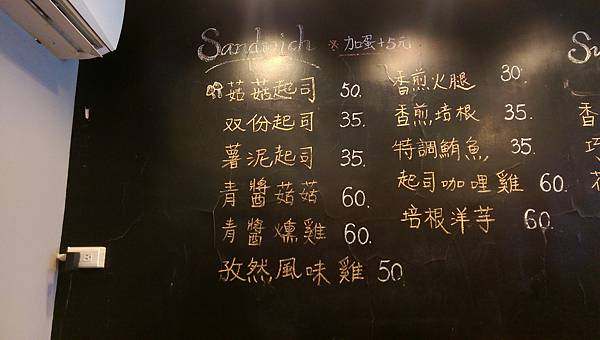 Sandwich ※加蛋+5元
菇菇起司 50.
双份起司 35.
薯泥起司 35.
青醬菇菇 60.
青醬燻雞 60.
孜然風味雞 50
香煎火腿 30.
香煎培根 35.
特調鮪魚 35.
起司咖哩雞 60.
培根洋芋 60.
Su
香
巧